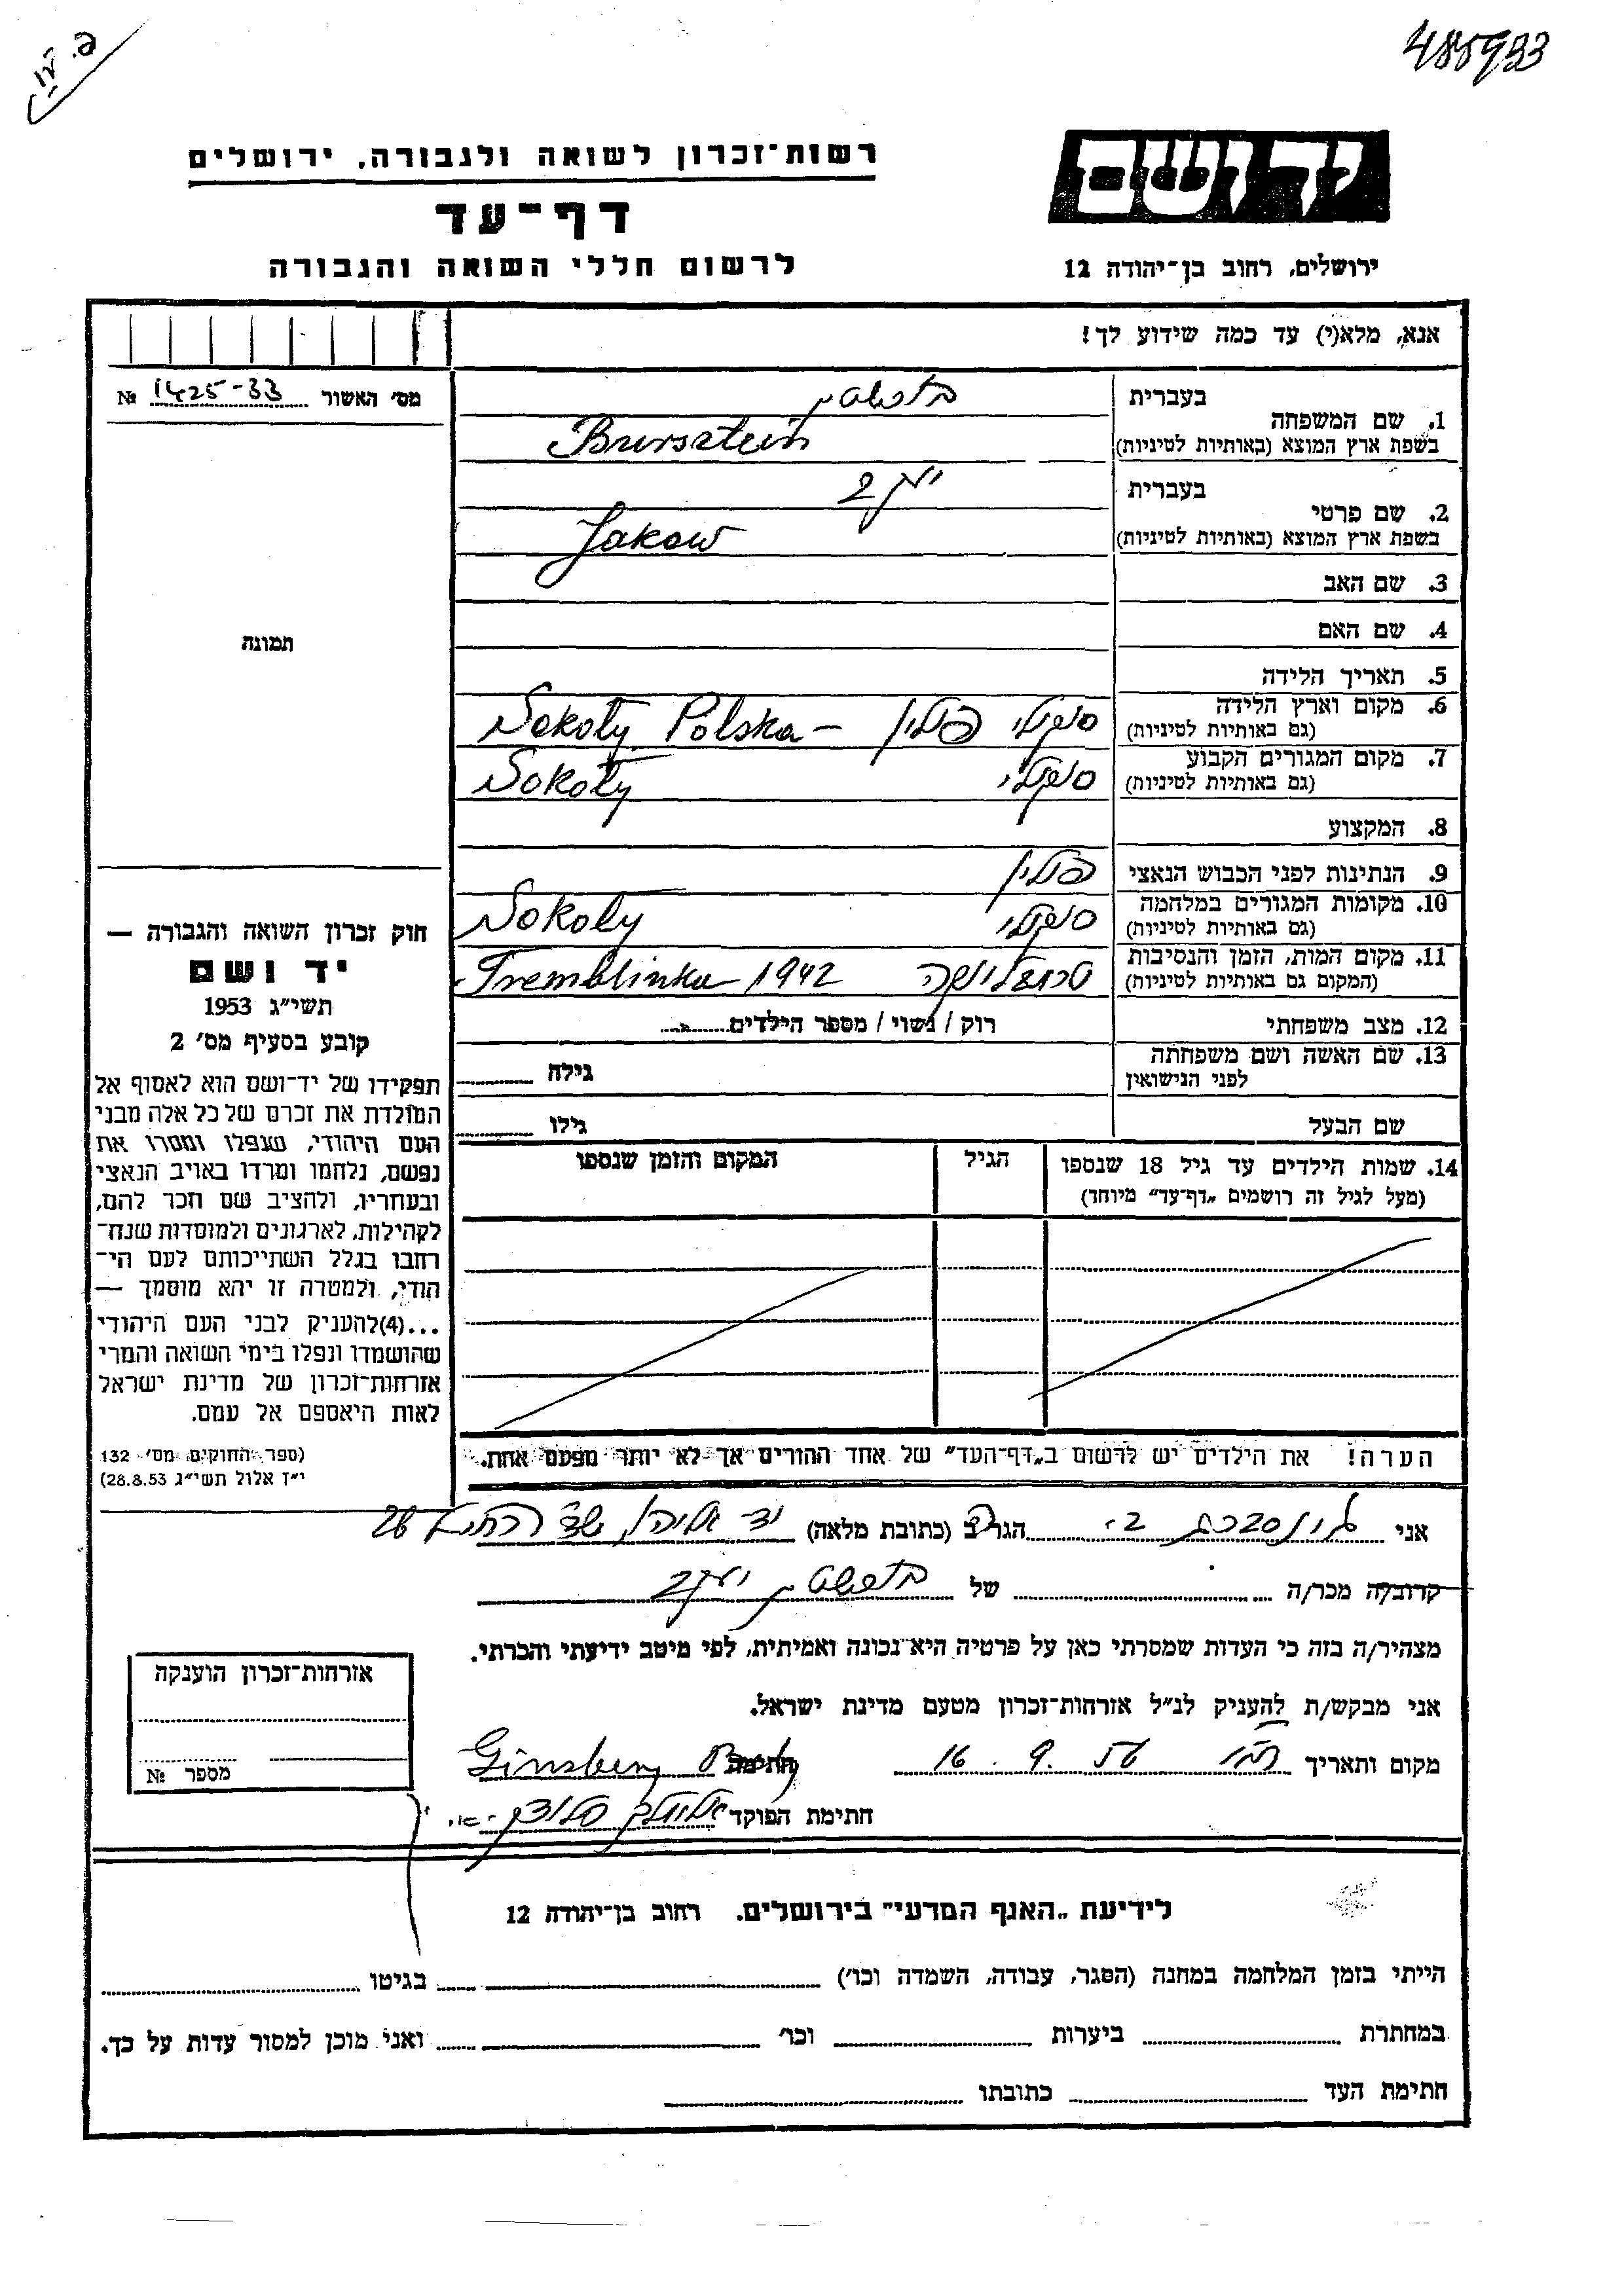 485933
רשות־זכרון לשואה ולגבורה, ירושלים
דף־עד
לרשום חללי השואה והגבורה
יד ושם
ירושלים, רחוב בן־יהודה 12
אנא, מלא(י) עד כמה שידוע לך!
מס׳ האשור 1425-33 №
תמונה
1. שם המשפחה
בעברית בורשטין
בשפת ארץ המוצא (באותיות לטיניות) Bursztein
2. שם פרטי
בעברית יעקב
בשפת ארץ המוצא (באותיות לטיניות) Jakow
3. שם האב
4. שם האם
5. תאריך הלידה
6. מקום וארץ הלידה
(גם באותיות לטיניות) סוקולי פולין – Sokoły Polska
7. מקום המגורים הקבוע
(גם באותיות לטיניות) סוקולי Sokoły
8. המקצוע
9. הנתינות לפני הכבוש הנאצי פולין
10. מקומות המגורים במלחמה
(גם באותיות לטיניות) סוקולי Sokoły
11. מקום המות, הזמן והנסיבות
(המקום גם באותיות לטיניות) טרמבלינקה 1942 Tremblinka
12. מצב משפחתי רוק / נשוי / מספר הילדים
13. שם האשה ושם משפחתה
לפני הנישואין גילה
שם הבעל גילו
14. שמות הילדים עד גיל 18 שנספו הגיל המקום והזמן שנספו
(מעל לגיל זה רושמים „דף־עד״ מיוחד)
הערה! את הילדים יש לרשום ב„דף־העד״ של אחד ההורים אך לא יותר מפעם אחת.
חוק זכרון השואה והגבורה —
יד ושם
תשי״ג 1953
קובע בסעיף מס׳ 2
תפקידו של יד־ושם הוא לאסוף אל
המולדת את זכרם של כל אלה מבני
העם היהודי, שנפלו ומסרו את
נפשם, נלחמו ומרדו באויב הנאצי
ובעוזריו, ולהציב שם וזכר להם,
לקהילות, לארגונים ולמוסדות שנח־
רבו בגלל השתייכותם לעם הי־
הודי, ולמטרה זו יהא מוסמך —
...(4) להעניק לבני העם היהודי
שהושמדו ונפלו בימי השואה והמרי
אזרחות־זכרון של מדינת ישראל
לאות היאספם אל עמם.
(ספר החוקים מס׳ 132
י״ז אלול תשי״ג 28.8.53)
אני גינסברג ב. הגר ב (כתובת מלאה) יד אליהו 26
קרוב/ה מכר/ה של בורשטין יעקב
מצהיר/ה בזה כי העדות שמסרתי כאן על פרטיה היא נכונה ואמיתית, לפי מיטב ידיעתי והכרתי.
אני מבקש/ת להעניק לנ״ל אזרחות־זכרון מטעם מדינת ישראל.
מקום ותאריך 16. 9. 56 חתימה Ginsberg
חתימת הפוקד
אזרחות־זכרון הוענקה
מספר №
לידיעת „האגף המדעי״ בירושלים, רחוב בן־יהודה 12
הייתי בזמן המלחמה במחנה (הסגר, עבודה, השמדה וכו׳) בגיטו
במחתרת ביערות וכו׳ ואני מוכן למסור עדות על כך.
חתימת העד כתובתו